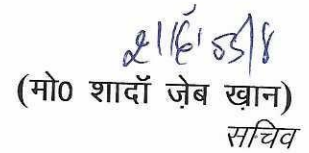 (मो0 शादॉ ज़ेब ख़ान)
सचिव